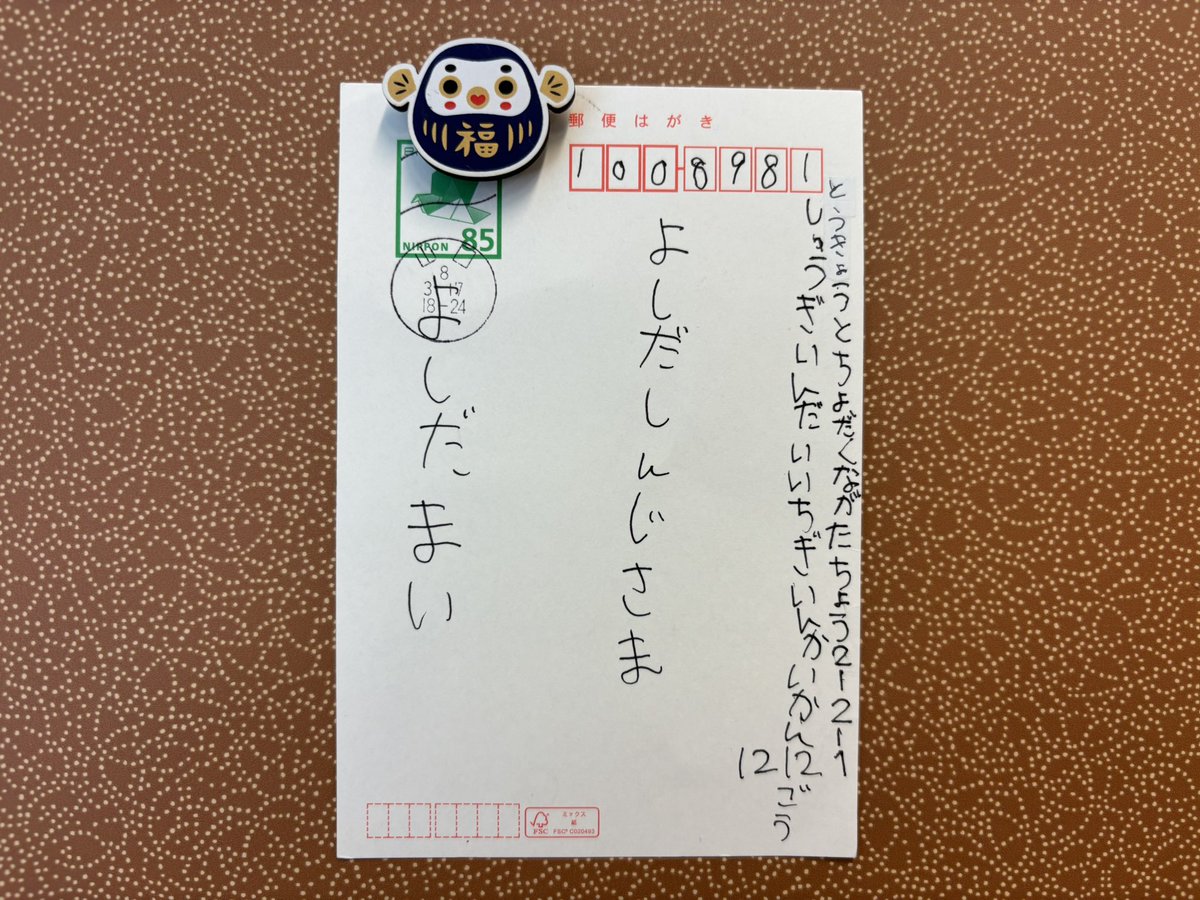 郵便はがき
100-8981
とうきょうとちよだくながたちょう2-2-1
しゅうぎいんだいいちぎいんかいかん
1212ごう
よしだしんじさま
よしだまい
福
NIPPON 85
8
3-17
18-24
ミックス
紙
FSC
FSC® C020493